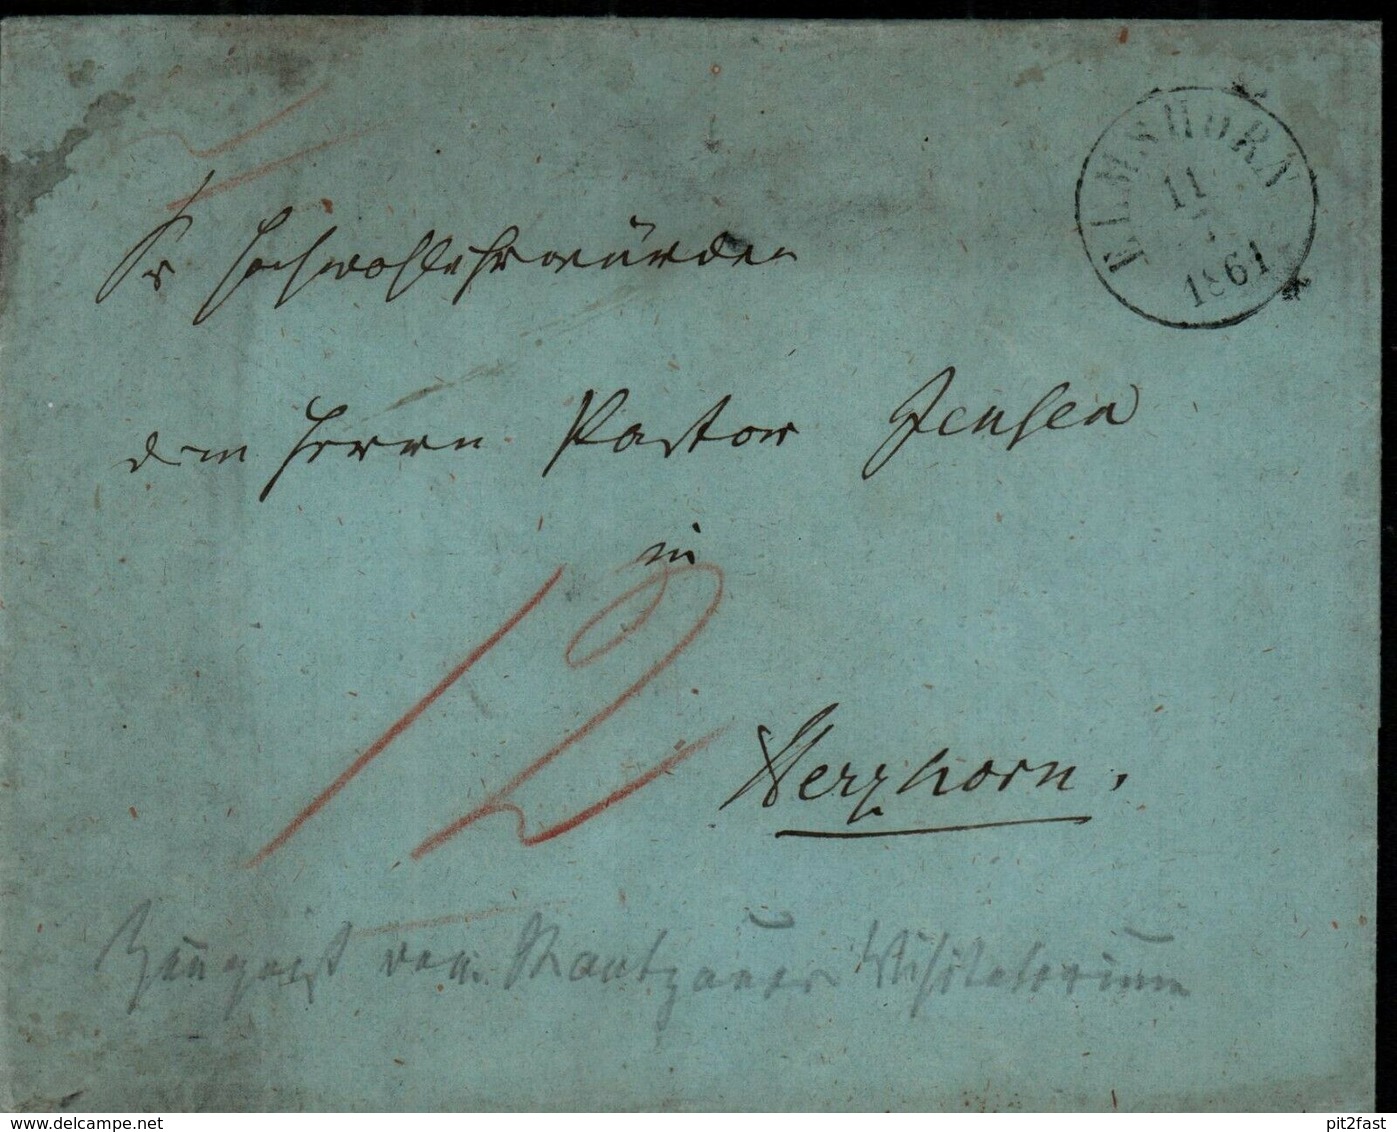 ELMSHORN
11
1861
Sr Hochwohlehrwürden
dem Herrn Pastor Jensen
in
12
Herzhorn.
vom Visitatorium
www.delcampe.net
pit2fast